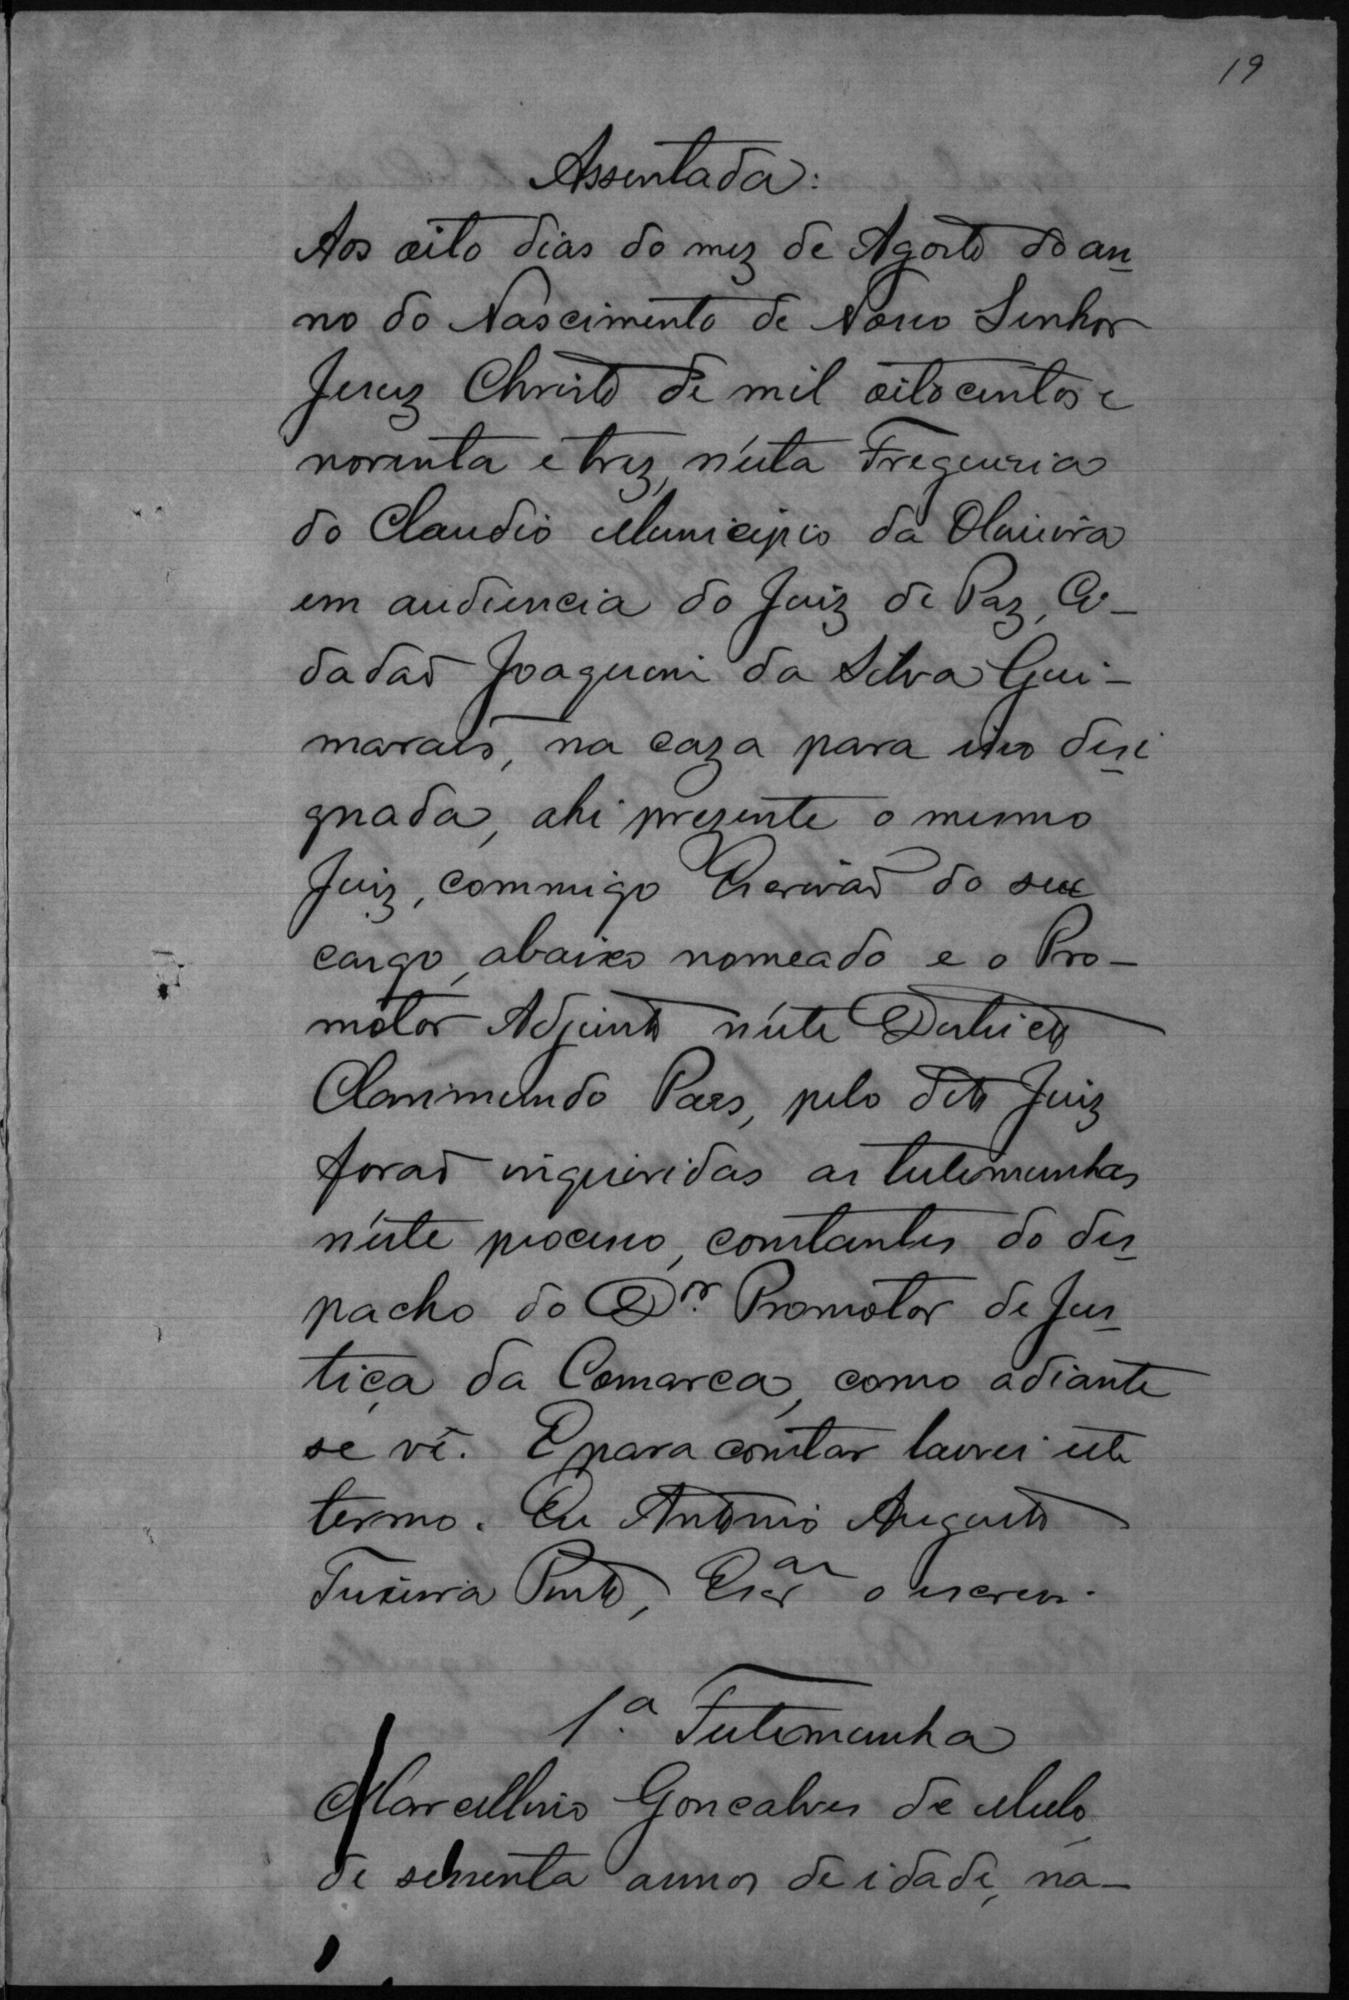 19
Assentada:
Aos oito dias do mez de Agosto do an-
no do Nascimento de Nosso Senhor
Jesuz Christo de mil oitocentos e
noventa e trez, n'esta Freguezia
do Claudio Municipio da Oliveira
em audiencia do Juiz de Paz, Ci-
dadaõ Joaquim da Silva Gui-
marais, na caza para isso desi
gnada, ahi prezente o mesmo
Juiz, commigo Escrivaõ do seu
cargo, abaixo nomeado e o Pro-
motor Adjunto n'este Districto
Clarimundo Paes, pelo dito Juiz
foraõ inqueridas as testemunhas
n'este processo, constantes do des-
pacho do Dr. Promotor de Jus-
tiça da Comarca, como adiante
se vê. E para constar lavrei este
termo. Eu Antonio Augusto
Teixeira Pinto, Escram o escrevi.
1.a Testemunha
Marcellino Goncalves de Mello
de sessenta annos de idade, na-